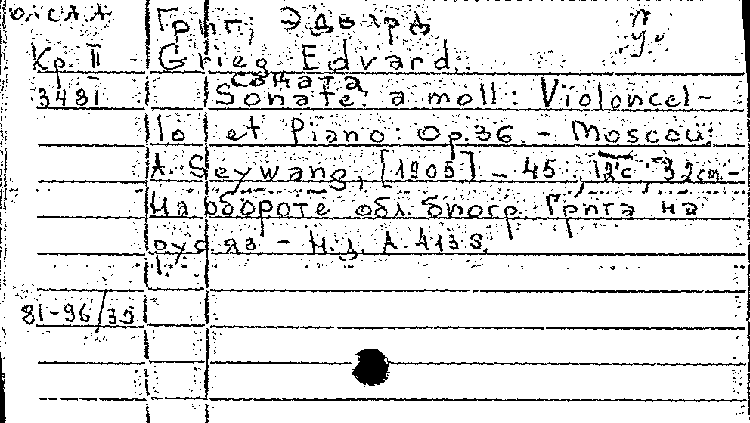 Григ, Эдвард
Кр. II Grieg Edvard.
соната
3481 Sonate: a moll: Violoncel-
lo et Piano: Op. 36. - Moscou:
A. Seywang, [1905] - 45, 12 с; 32cm-
На обороте обл. биогр. Грига на
рус яз - Н.д. А. 413 S.
81-96/35